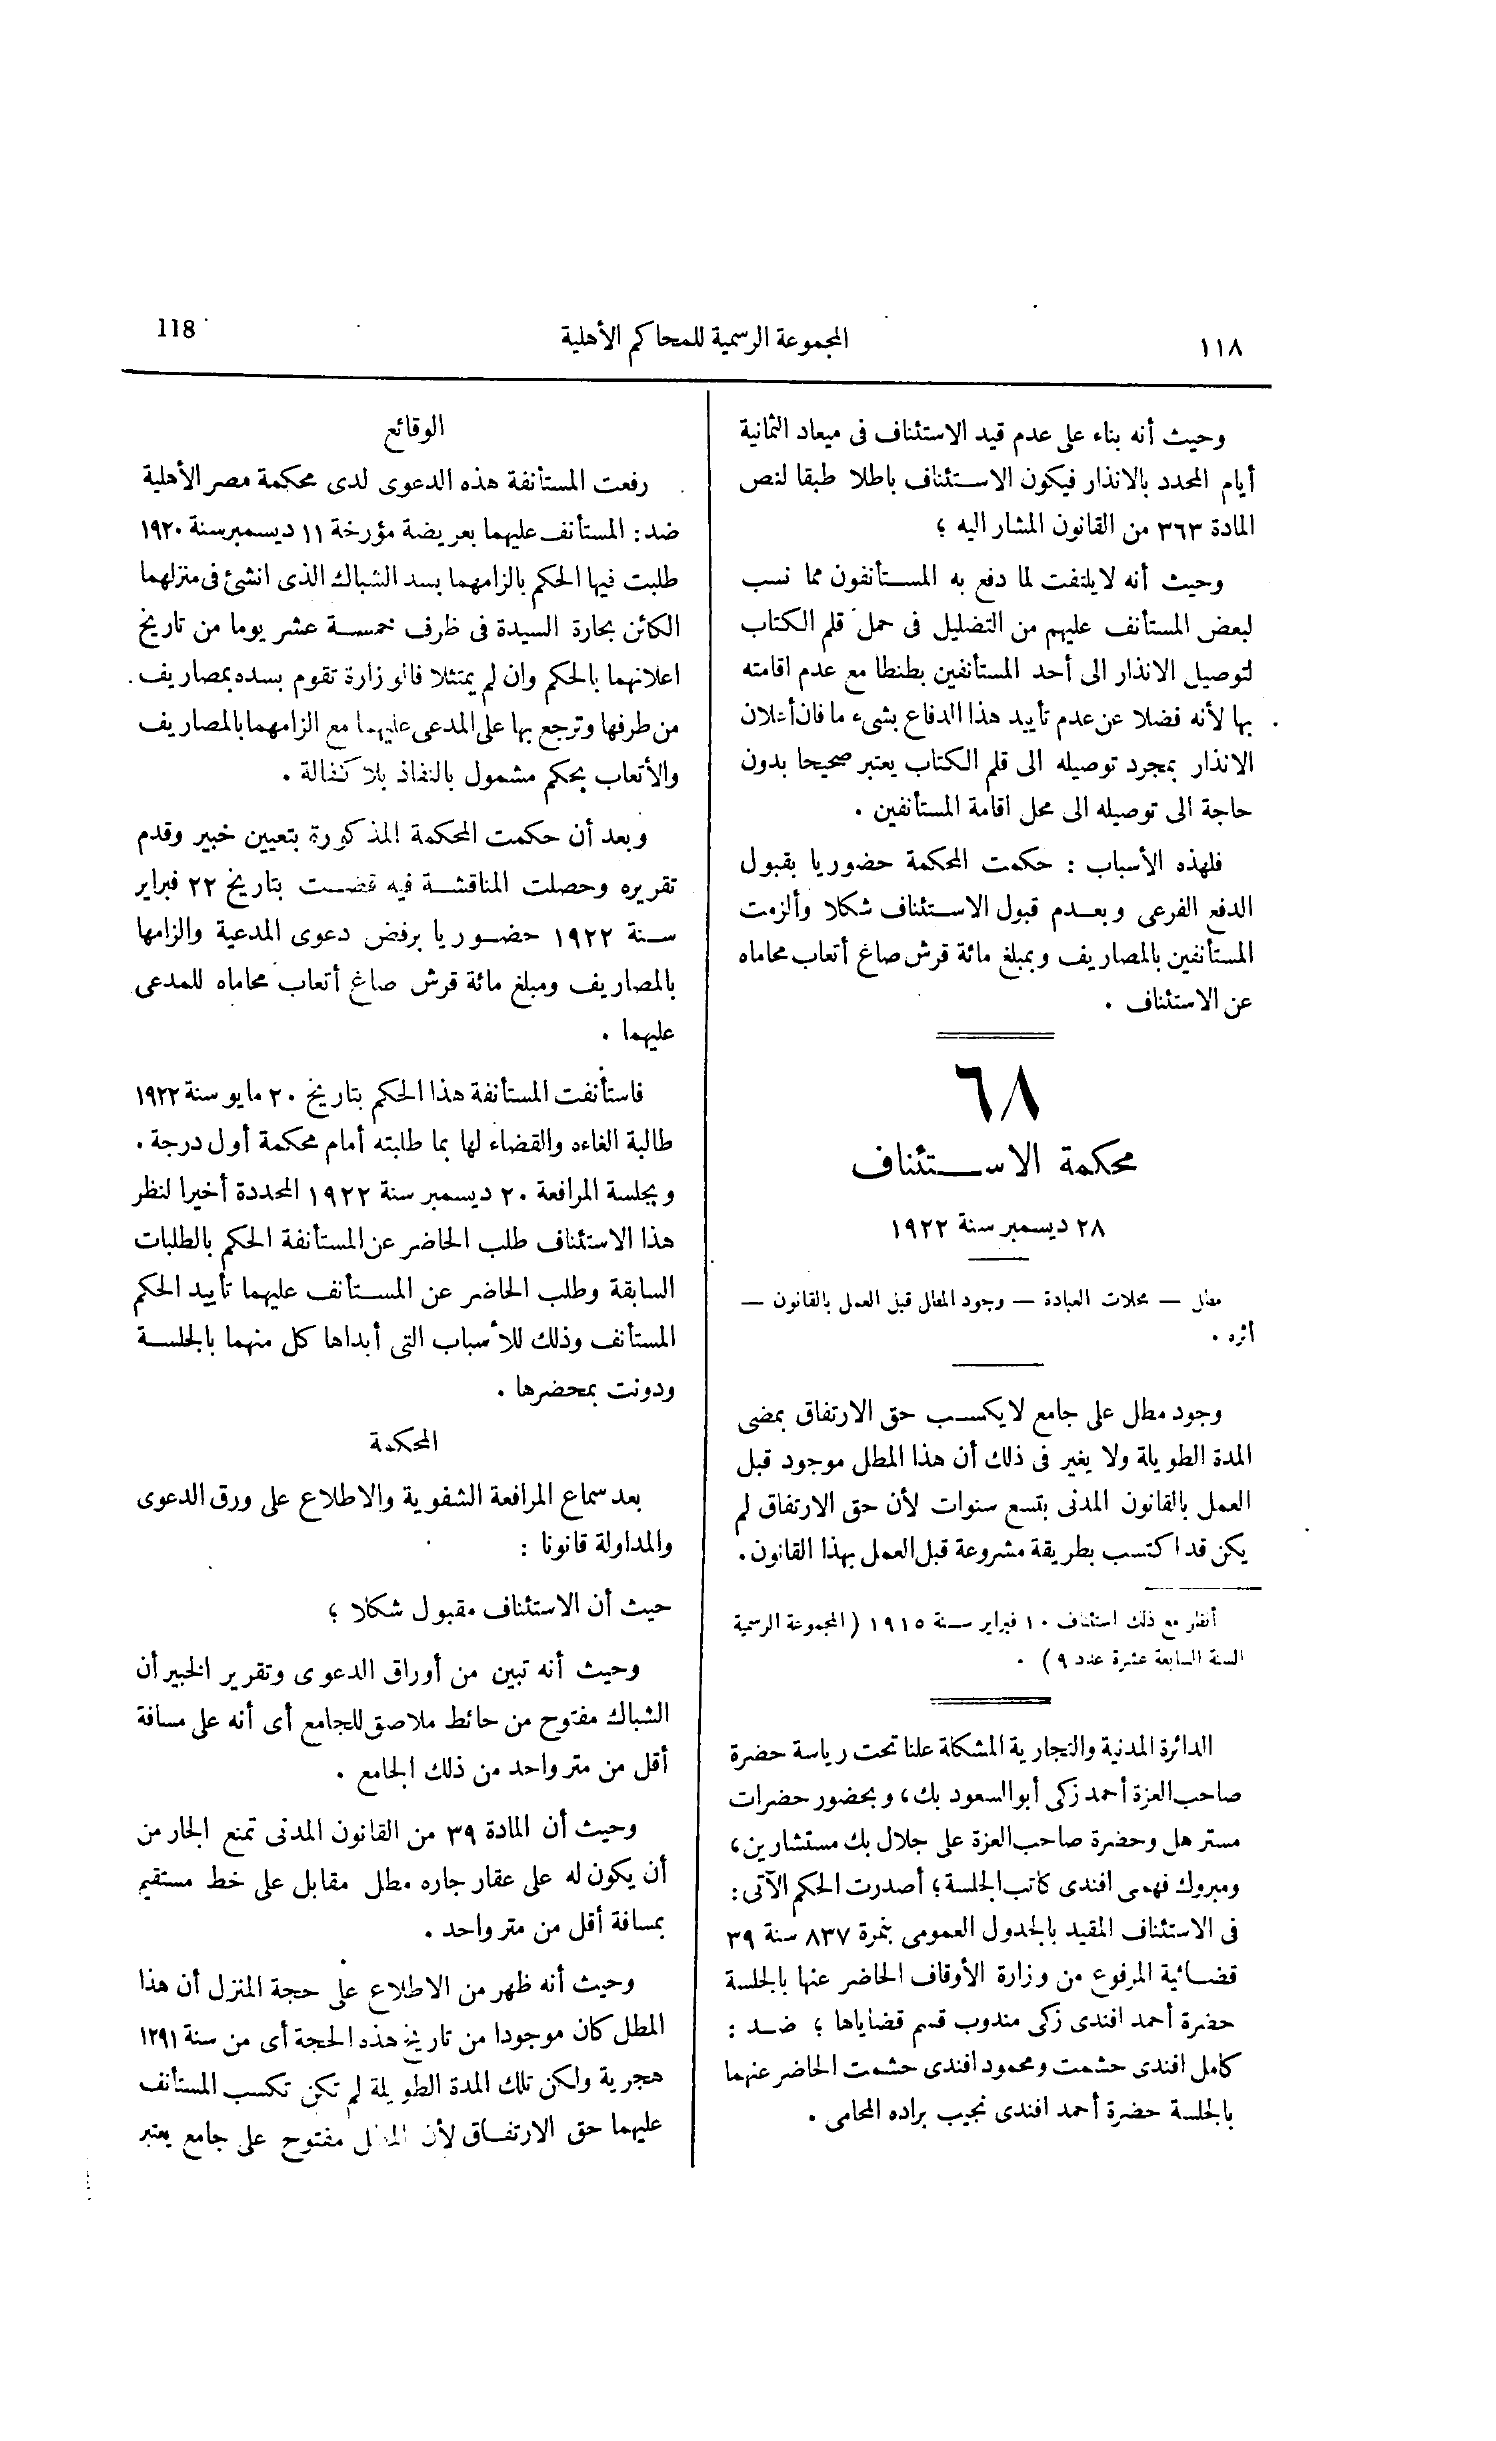 ١١٨
المجموعة الرسمية للمحاكم الأهلية
118
وحيث أنه بناء على عدم قيد الاستئناف فى ميعاد الثمانية
أيام المحدد بالانذار فيكون الاستئناف باطلا طبقا لنص
المادة ٣٦٣ من القانون المشار اليه ؛
وحيث أنه لا يلتفت لما دفع به المستأنفون مما نسب
لبعض المستأنف عليهم من التضليل فى حمل قلم الكتاب
لتوصيل الانذار الى أحد المستأنفين بطنطا مع عدم اقامته
بها لأنه فضلا عن عدم تأييد هذا الدفاع بشىء ما فان أعلان
الانذار بمجرد توصيله الى قلم الكتاب يعتبر صحيحا بدون
حاجة الى توصيله الى محل اقامة المستأنفين .
فلهذه الأسباب : حكمت المحكمة حضوريا بقبول
الدفع الفرعى وبعدم قبول الاستئناف شكلا وألزمت
المستأنفين بالمصاريف وبمبلغ مائة قرش صاغ أتعاب محاماه
عن الاستئناف .
٦٨
محكمة الاستئناف
٢٨ ديسمبر سنة ١٩٢٢
مطل — محلات العبادة — وجود المطل قبل العمل بالقانون —
أثره .
وجود مطل على جامع لا يكسب حق الارتفاق بمضى
المدة الطويلة ولا يغير فى ذلك أن هذا المطل موجود قبل
العمل بالقانون المدنى بتسع سنوات لأن حق الارتفاق لم
يكن قد اكتسب بطريقة مشروعة قبل العمل بهذا القانون .
أنظر مع ذلك استئناف ١٠ فبراير سنة ١٩١٥ ( المجموعة الرسمية
السنة السابعة عشرة عدد ٩ ) .
الدائرة المدنية والتجارية المشكلة علنا تحت رياسة حضرة
صاحب العزة أحمد زكى أبو السعود بك ، وبحضور حضرات
مستر هل وحضرة صاحب العزة على جلال بك مستشارين ،
ومبروك فهمى افندى كاتب الجلسة ؛ أصدرت الحكم الآتى :
فى الاستئناف المقيد بالجدول العمومى بنمرة ٨٣٧ سنة ٣٩
قضائية المرفوع من وزارة الأوقاف الحاضر عنها بالجلسة
حضرة أحمد افندى زكى مندوب قسم قضاياها ؛ ضد :
كامل افندى حشمت ومحمود افندى حشمت الحاضر عنهما
بالجلسة حضرة أحمد افندى نجيب براده المحامى .
الوقائع
رفعت المستأنفة هذه الدعوى لدى محكمة مصر الأهلية
ضد : المستأنف عليهما بعريضة مؤرخة ١١ ديسمبر سنة ١٩٢٠
طلبت فيها الحكم بالزامهما بسد الشباك الذى انشئ فى منزلهما
الكائن بحارة السيدة فى ظرف خمسة عشر يوما من تاريخ
اعلانهما بالحكم وان لم يمتثلا فالوزارة تقوم بسده بمصاريف
من طرفها وترجع بها على المدعى عليهما مع الزامهما بالمصاريف
والأتعاب بحكم مشمول بالنفاذ بلا كفالة .
وبعد أن حكمت المحكمة المذكورة بتعيين خبير وقدم
تقريره وحصلت المناقشة فيه قضت بتاريخ ٢٢ فبراير
سنة ١٩٢٢ حضوريا برفض دعوى المدعية والزامها
بالمصاريف ومبلغ مائة قرش صاغ أتعاب محاماه للمدعى
عليهما .
فاستأنفت المستأنفة هذا الحكم بتاريخ ٢٠ مايو سنة ١٩٢٢
طالبة الغاءه والقضاء لها بما طلبته أمام محكمة أول درجة .
وبجلسة المرافعة ٢٠ ديسمبر سنة ١٩٢٢ المحددة أخيرا لنظر
هذا الاستئناف طلب الحاضر عن المستأنفة الحكم بالطلبات
السابقة وطلب الحاضر عن المستأنف عليهما تأييد الحكم
المستأنف وذلك للأسباب التى أبداها كل منهما بالجلسة
ودونت بمحضرها .
المحكمة
بعد سماع المرافعة الشفوية والاطلاع على ورق الدعوى
والمداولة قانونا :
حيث أن الاستئناف مقبول شكلا ؛
وحيث أنه تبين من أوراق الدعوى وتقرير الخبير أن
الشباك مفتوح من حائط ملاصق للجامع أى أنه على مسافة
أقل من متر واحد من ذلك الجامع .
وحيث أن المادة ٣٩ من القانون المدنى تمنع الجار من
أن يكون له على عقار جاره مطل مقابل على خط مستقيم
بمسافة أقل من متر واحد .
وحيث أنه ظهر من الاطلاع على حجة المنزل أن هذا
المطل كان موجودا من تاريخ هذه الحجة أى من سنة ١٢٩١
هجرية ولكن تلك المدة الطويلة لم تكن تكسب المستأنف
عليهما حق الارتفاق لأن المطل مفتوح على جامع يعتبر